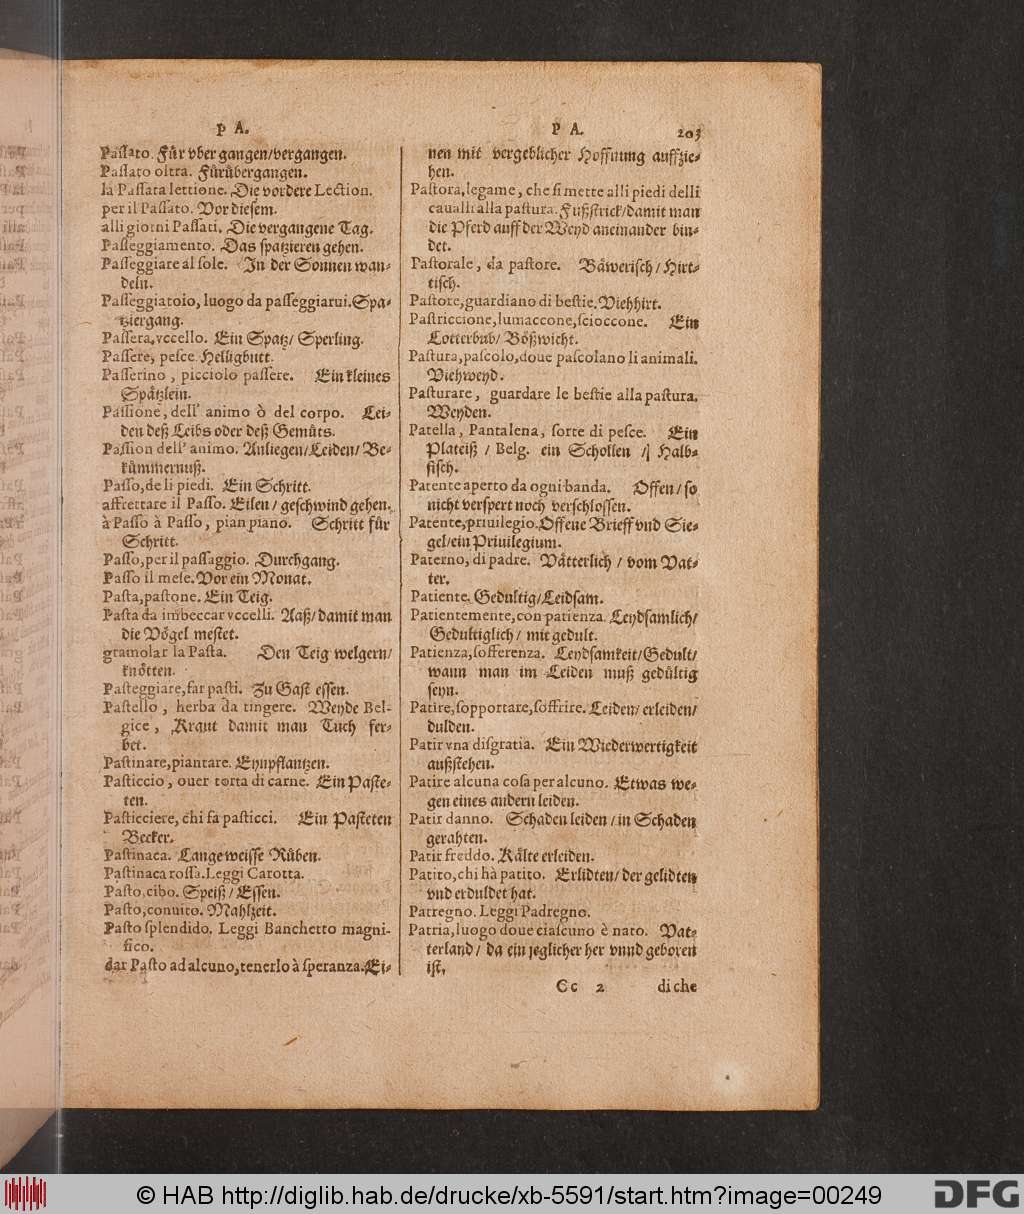 P A.
Paſſato. Fůr vber gangen/vergangen.
Paſſato oltra. Fůrůbergangen.
la Paſſata lettione. Die vordere Lection.
per il Paſſato. Vor dieſem.
alli giorni Paſſati. Die vergangene Tag.
Paſſeggiamento. Das ſpatzieren gehen.
Paſſeggiare al ſole. In der Sonnen wan-
deln.
Paſſeggiatoio, luogo da paſſeggiarui. Spa-
tziergang.
Paſſera, vccello. Ein Spatz/ Sperling.
Paſſere, peſce. Helligbutt.
Paſſerino, picciolo paſſere. Ein kleines
Spåtzlein.
Paſſione, dell' animo ò del corpo. Lei-
den deß Leibs oder deß Gemůts.
Paſſion dell' animo. Anliegen/Leiden/ Be-
kůmmernuß.
Paſſo, de li piedi. Ein Schritt.
affrettare il Paſſo. Eilen/ geſchwind gehen.
à Paſſo à Paſſo, pian piano. Schritt fůr
Schritt.
Paſſo, per il paſſaggio. Durchgang.
Paſſo il meſe. Vor ein Monat.
Paſta, paſtone. Ein Teig.
Paſta da imbeccar vccelli. Aaß/ damit man
die Vögel meſtet.
gramolar la Paſta. Den Teig welgern/
knötten.
Paſteggiare, far paſti. Zu Gaſt eſſen.
Paſtello, herba da tingere. Weyde Bel-
gice, Kraut damit man Tuch fer-
bet.
Paſtinare, piantare. Eynpflantzen.
Paſticcio, ouer torta di carne. Ein Paſte-
ten.
Paſticciere, chi fa paſticci. Ein Paſteten
Becker.
Paſtinaca. Lange weiſſe Růben.
Paſtinaca roſſa. Leggi Carotta.
Paſto, cibo. Speiß/ Eſſen.
Paſto, conuito. Mahlzeit.
Paſto ſplendido. Leggi Banchetto magni-
fico.
dar Paſto ad alcuno, tenerlo à ſperanza. Ei-
P A. 203
nen mit vergeblicher Hoffnung auffzie-
hen.
Paſtora, legame, che ſi mette alli piedi delli
caualli alla paſtura. Fußſtrick/damit man
die Pferd auff der Weyd aneinander bin-
det.
Paſtorale, da paſtore. Båweriſch/ Hirt-
tiſch.
Paſtore, guardiano di beſtie. Viehhirt.
Paſtriccione, lumaccone, ſcioccone. Ein
Lotterbub/ Bößwicht.
Paſtura, paſcolo, doue paſcolano li animali.
Viehweyd.
Paſturare, guardare le beſtie alla paſtura.
Weyden.
Patella, Pantalena, ſorte di peſce. Ein
Plateiß / Belg. ein Schollen / Halb-
fiſch.
Patente aperto da ogni banda. Offen/ ſo
nicht verſpert noch verſchloſſen.
Patente, priuilegio. Offene Brieff vnd Sie-
gel/ein Priuilegium.
Paterno, di padre. Våtterlich / vom Vat-
ter.
Patiente. Gedultig/Leidſam.
Patientemente, con patienza. Leydſamlich/
Gedultiglich/ mit gedult.
Patienza, ſofferenza. Leydſamkeit/Gedult/
wann man im Leiden muß gedůltig
ſeyn.
Patire, ſopportare, ſoffrire. Leiden/ erleiden/
dulden.
Patir vna diſgratia. Ein Wiederwertigkeit
außſtehen.
Patire alcuna coſa per alcuno. Etwas we-
gen eines andern leiden.
Patir danno. Schaden leiden/ in Schaden
gerahten.
Patir freddo. Kålte erleiden.
Patito, chi hà patito. Erlidten/ der gelidten
vnd erduldet hat.
Patregno. Leggi Padregno.
Patria, luogo doue ciaſcuno è nato. Vat-
terland/ da ein jeglicher her vnnd geboren
iſt,
Cc 2 di che
© HAB http://diglib.hab.de/drucke/xb-5591/start.htm?image=00249
DFG